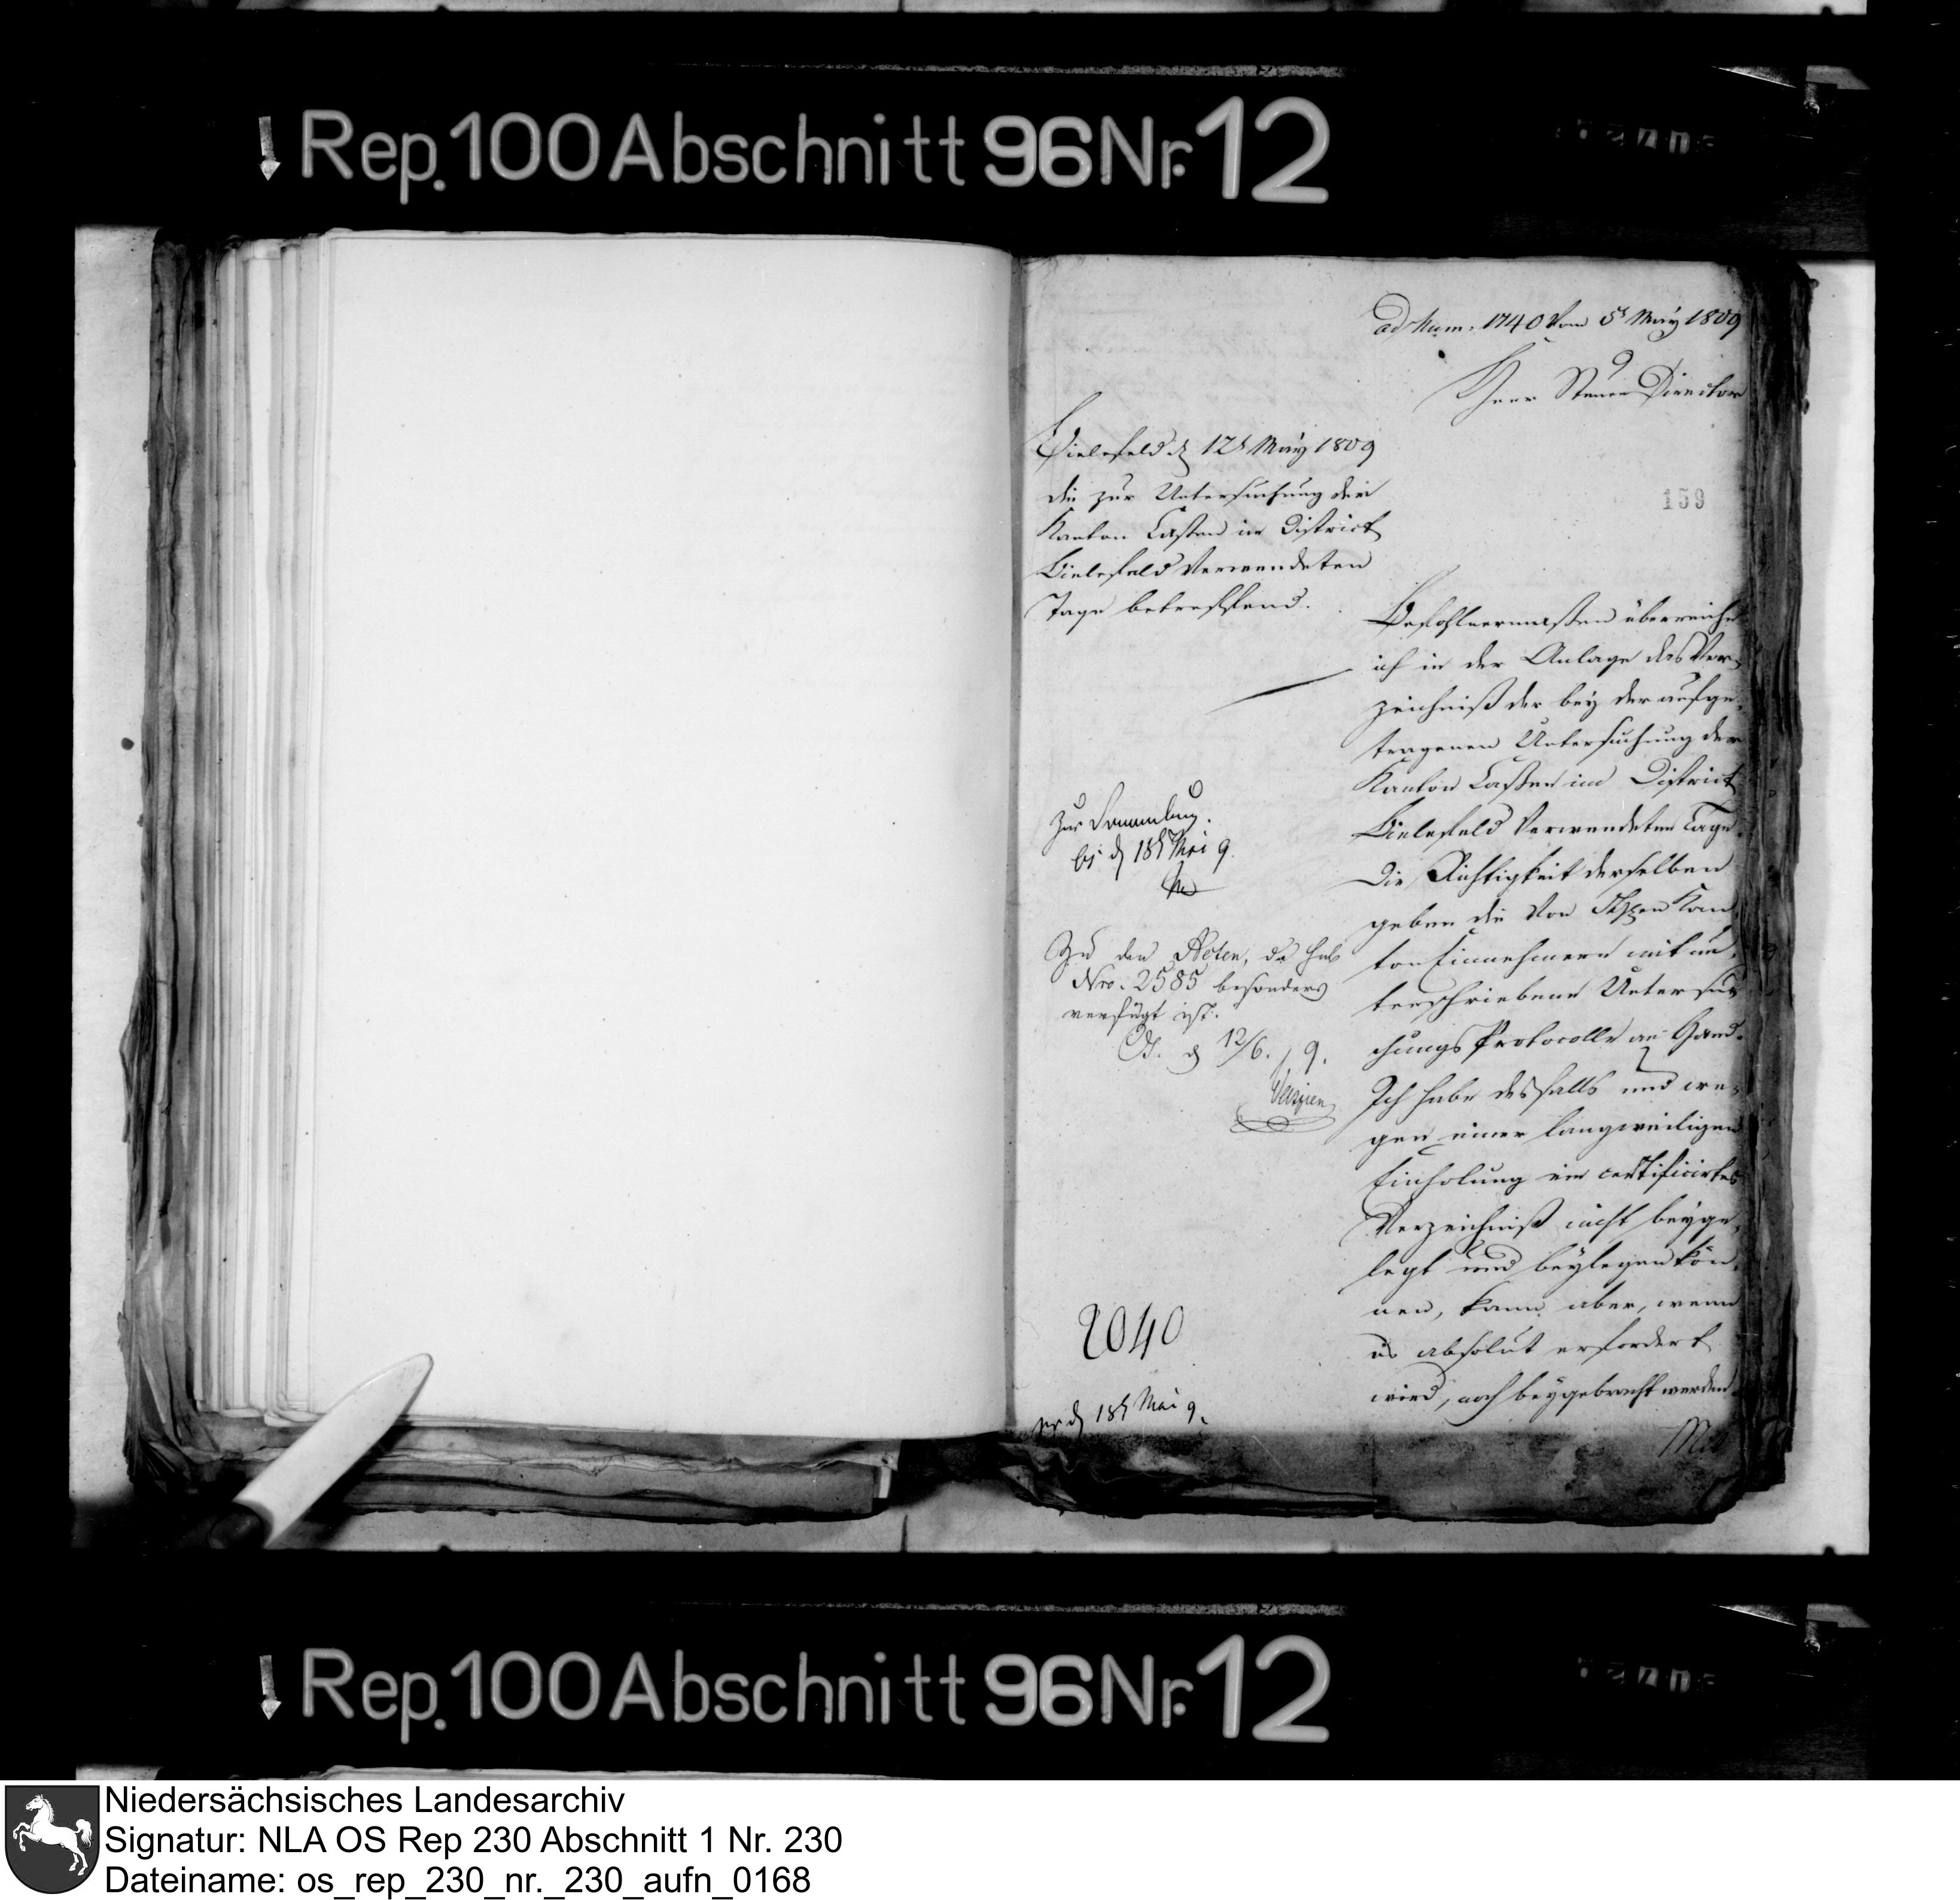 Rep. 100 Abschnitt 96 Nr. 12
ad Num. 1740 vom 5t May 1809
Herr Steuer Director
Bielefeld d 12t May 1809
die zur Untersuchung der
Kanton Cassen im District
Bielefeld verwendeten
Tage betreffend.
159
Befohlnermaßen überreiche
ich in der Anlage das Ver-
zeichniß der bey der aufge-
tragenen Untersuchung der
Kanton Cassen im District
Bielefeld verwendeten Tage.
Die Richtigkeit derselben
geben die von Kan-
ton Einnehmern mit un-
terschriebene Untersu-
chungs Protocolle an Hand.
Ich habe desfalls und we-
gen einer langweiligen
Einholung ein certificirtes
Verzeichniß nicht beyge-
legt und beylegen kön-
nen, kann aber, wenn
es absolut erfordert
wird, noch beygebracht werden.
Mit
Zur Sammlung.
d 18t Mai 9.
Zu den Acten, da sub
Nro. 2585 besonders
verfügt ist.
d 12/6. 9.
2040
pr d 18t Mai 9.
Rep. 100 Abschnitt 96 Nr. 12
Niedersächsisches Landesarchiv
Signatur: NLA OS Rep 230 Abschnitt 1 Nr. 230
Dateiname: os_rep_230_nr._230_aufn_0168